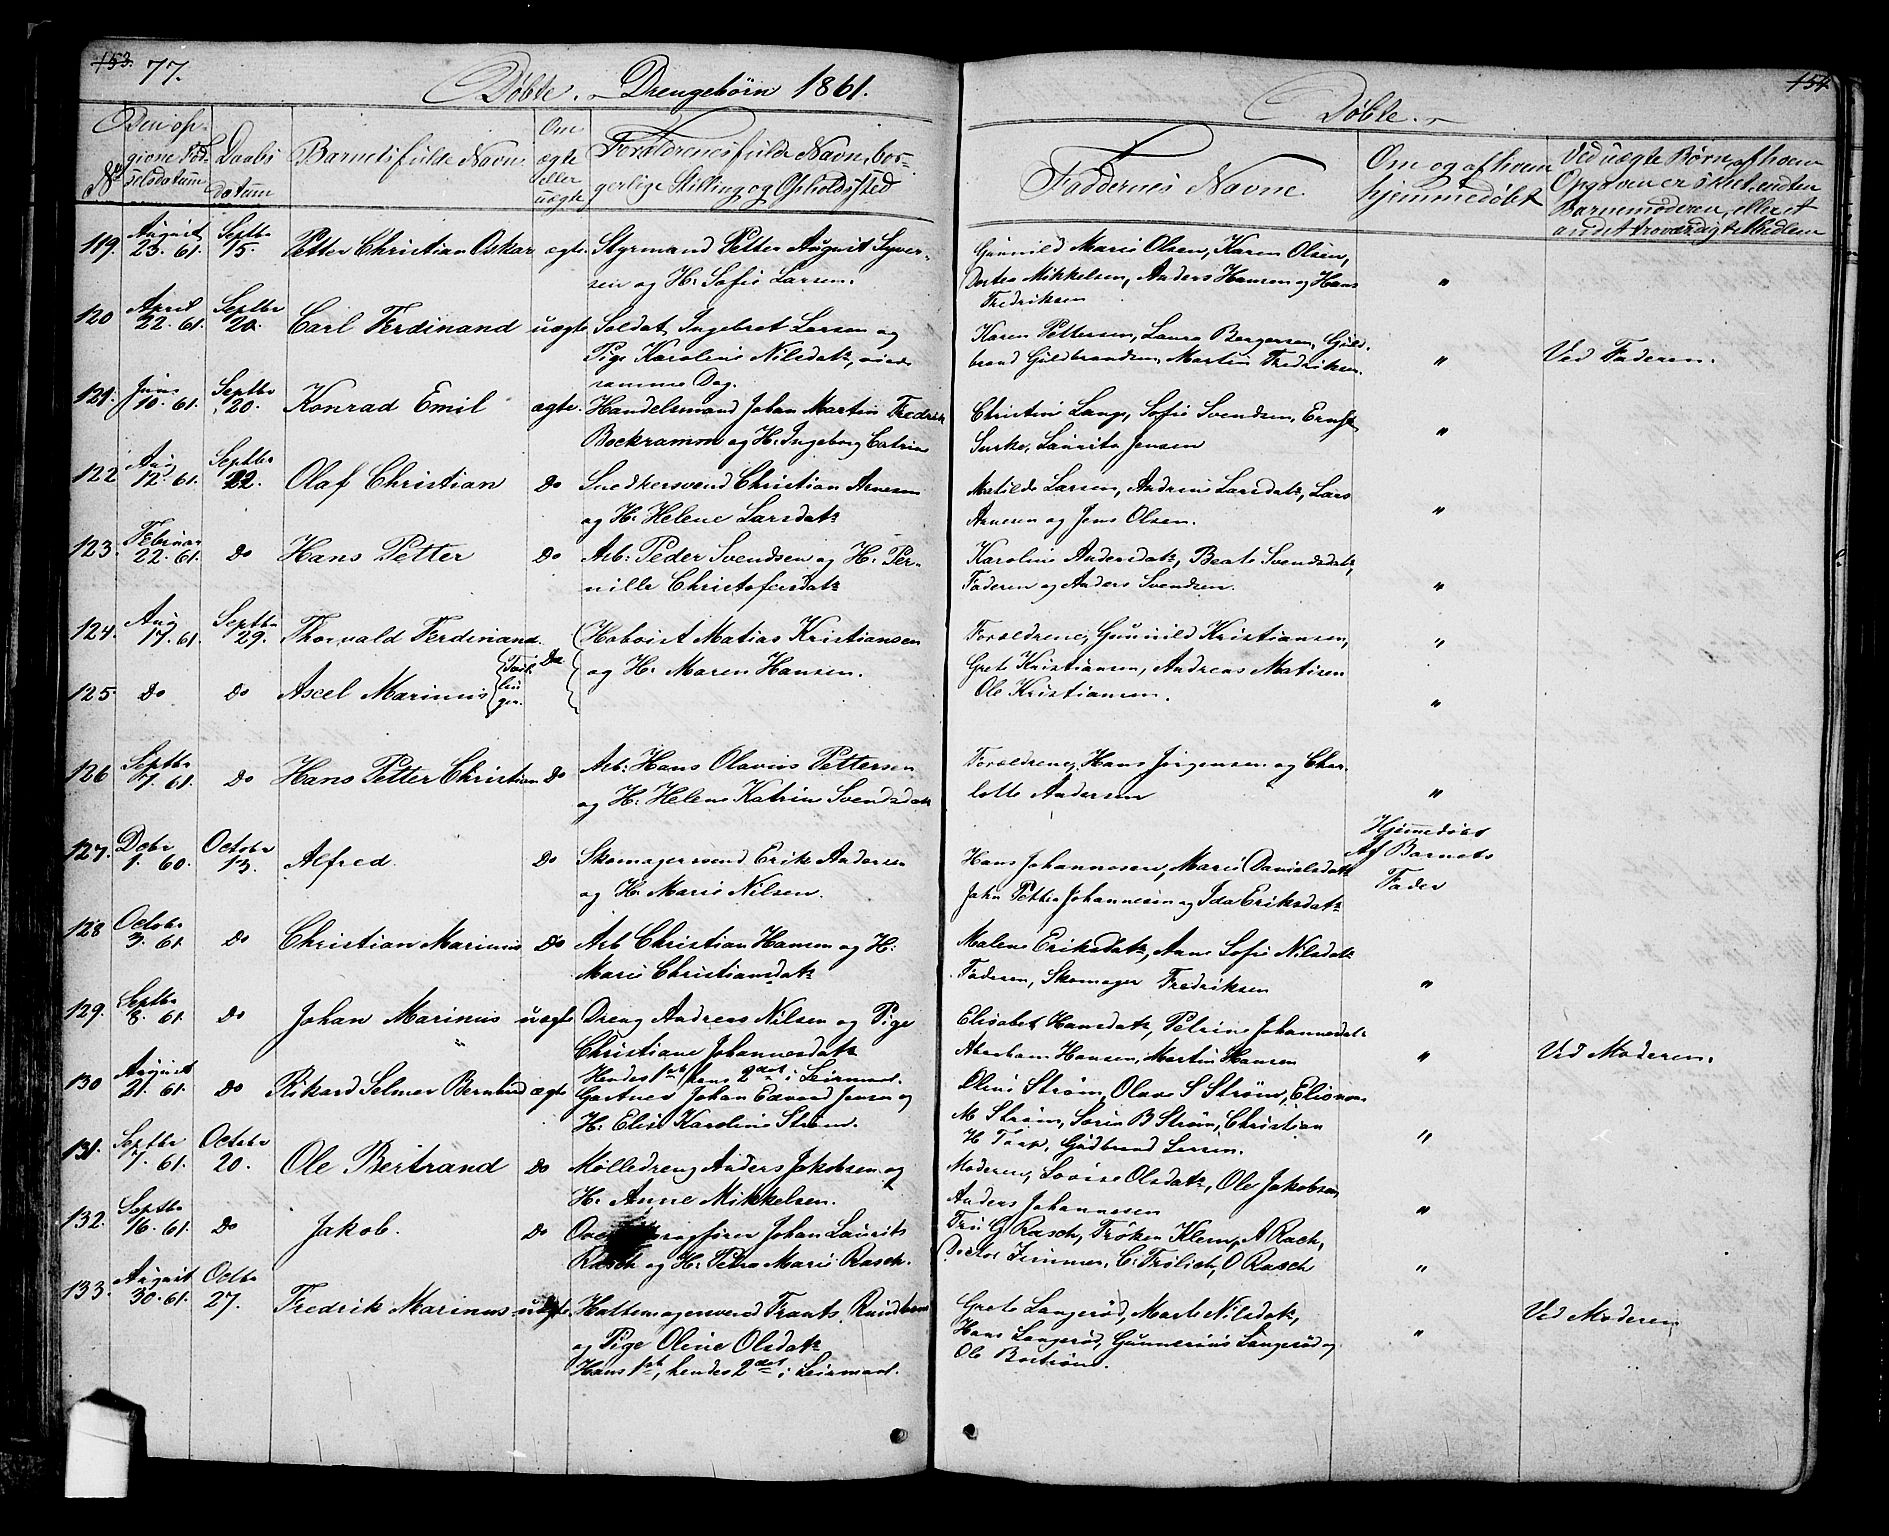 153. 77.
Døbte. Drengebørn 1861.
No
Den opgivne Fødselsdatum
Daabsdatum
Barnets fulde Navn.
Om ægte eller uægte
Forældrenes fulde Navn, borgerlige Stilling og Opholdssted
119. August 23. 61. Septbr 15. Petter Christian Oskar ægte. Styrmand Petter August Syver-
sen og H. Sofie Larsen.
120 April 22. 61. Septbr 20. Carl Ferdinand uægte Soldat Ingebret Larsen og
Pige Karoline Nilsdatr,
samme Dag.
121. Juni 10. 61. Septbr 20. Konrad Emil ægte. Handelsmand Johan Martin Fredrik
Bockramm og H. Ingeborg Catrine
122 Aug 12. 61. Septbr 22. Olaf Christian Do Snedkersvend Christian Arnesen
og H. Helene Larsdatr
123. Februar 22. 61. Do Hans Petter Do Arb: Peder Svendsen og H. Per-
nille Christofersdatr
124. Aug 17. 61. Septbr 29. Thorvald Ferdinand Do Hoboist Matias Kristiansen
125. Do Do Axel Marinus Tvillinger. og H. Maren Hansen.
126 Septbr 7. 61. Do Hans Petter Christian Do Arb: Hans Olavius Pettersen
og H. Helene Katrine Svendsdatr
127. Decbr 1. 60. Octobr 13. Alfred. Do Skomagersvend Erik Andersen
og H. Marie Nilsen.
128 Octobr 3. 61. Do Christian Marinus Do Arb Christian Hansen og H.
Marie Christiansdatr
129. Septbr 8. 61. Do Johan Marinus uægte Dreng Andreas Nilsen og Pige
Christiane Johannesdatr
Hendes 1ste, hans 2det i Leiermaal.
130 August 21. 61. Do Rikard Selmer Bernhard ægte Gartner Johan Edvard Jensen og
H. Elise Karoline Strøm.
131. Septbr 7. 61. Octobr 20. Ole Bertrand Do Mølledreng Anders Jakobsen og
H. Anne Mikkelsen.
132. Septbr 16. 61. Do Jakob. Do Johan Laurits
Rasch og H. Petra Marie Rasch.
133. August 30. 61. Octbr 27. Fredrik Marinus uægte Hattemagersvend Frants
og Pige Oline Olsdatr
Hans 1ste, hendes 2det i Leiermaal.
154
Døbte.
Faddernes Navne.
Om og af hvem hjemmedøbt
Ved uægte Børn, af hvem
Opgaven er skeet, enten
Barnemoderen, eller et
andet troværdigt Medlem
Gunnild Marie Olsen, Karen Olsen,
Dortea Mikkelsen, Anders Hansen og Hans "
Fredriksen
Karen Pettersen, Laura Bergersen, Guld-
brand Guldbrandsen, Martin Fredriksen. " Ved Faderen.
Christine Lange, Sofie Svendsen, Ernst
Laurits Jensen "
Matilde Larsen, Andrine Larsdatr, Lars
Arnesen og Jens Olsen. "
Karoline Andersdatr, Beate Svendsdatr,
Faderen og Anders Svendsen. "
Forældrene, Gunnild Kristiansen, "
Grete Kristiansen, Andreas Matisen
Ole Kristiansen. "
Forældrene, Hans Jørgensen og Char-
lotte Andersen "
Hans Johannesen, Marie Danielsdatr
John Petter Johannesen og Ida Eriksdatr
Hjemmedøbt
Af Barnets
Fader
Malene Eriksdatr, Anne Sofie Nilsdatr
Faderen, Skomager Fredriksen "
Elisabet Hansdatr, Petrine Johannesdatr
Abraham Hansen, Martin Hansen " Ved Moderen.
Oline Strøm, Olave S Strøm, Elionora
M Strøm, Søren B Strøm, Christian
H Torp, Gudbrand Larsen. "
Moderen, Lovise Olsdatr, Ole Jakobsen
Anders Johannesen "
Fru G Rasch, Frøken Klem, A Rach,
Doctor Zimmer, C. Frølich, O Rasch "
Grete Langerød, Marte Nilsdatr,
Hans Langerød, Gunnerius Langerød og
Ole Bostrøm. " Ved Moderen.